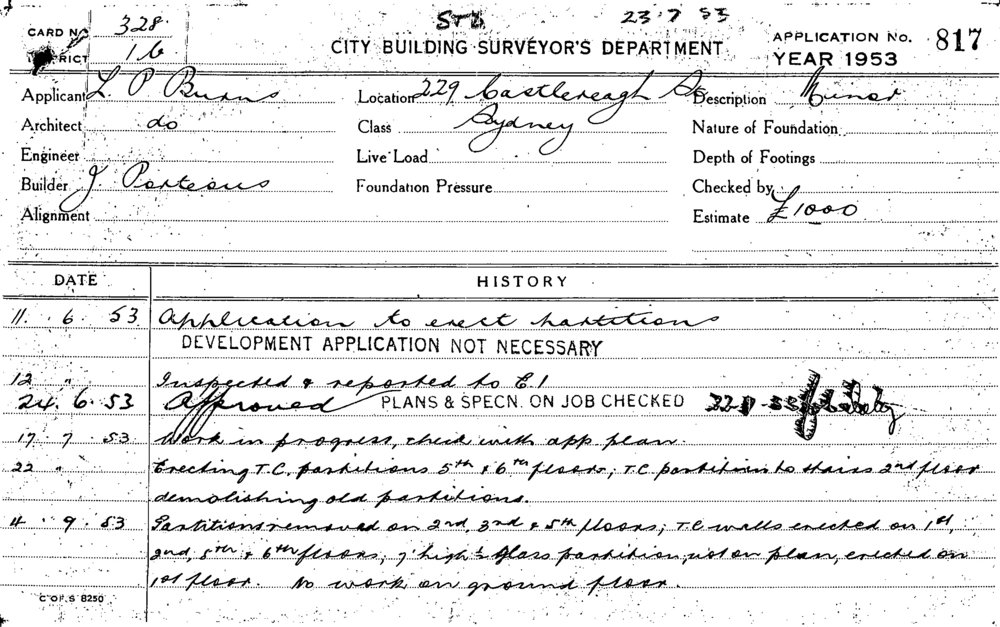 CARD No. 328
STB 23.7 53
DISTRICT 16
CITY BUILDING SURVEYOR'S DEPARTMENT
APPLICATION No. 817
YEAR 1953
Applicant L P Burns
Location 229 Castlereagh St
Description Minor
Architect do
Class Sydney
Nature of Foundation
Engineer
Live Load
Depth of Footings
Builder J. Porteous
Foundation Pressure
Checked by
Alignment
Estimate £1000
DATE HISTORY
11. 6. 53 Application to erect partitions
DEVELOPMENT APPLICATION NOT NECESSARY
12 " Inspected & reported to E.1
24. 6. 53 Approved PLANS & SPECN. ON JOB CHECKED
17 7. 53 Work in progress, check with app plan.
22 " Erecting T.C. partitions 5th & 6th floors; T.C. partition to stairs 2nd floor
demolishing old partitions.
4. 9. 53 Partitions removed on 2nd, 3rd & 5th floors; T.C walls erected on 1st,
2nd, 5th & 6th floors; 7' high glass partition, not on plan, erected on
1st floor. No work on ground floor.
C OF S 8250